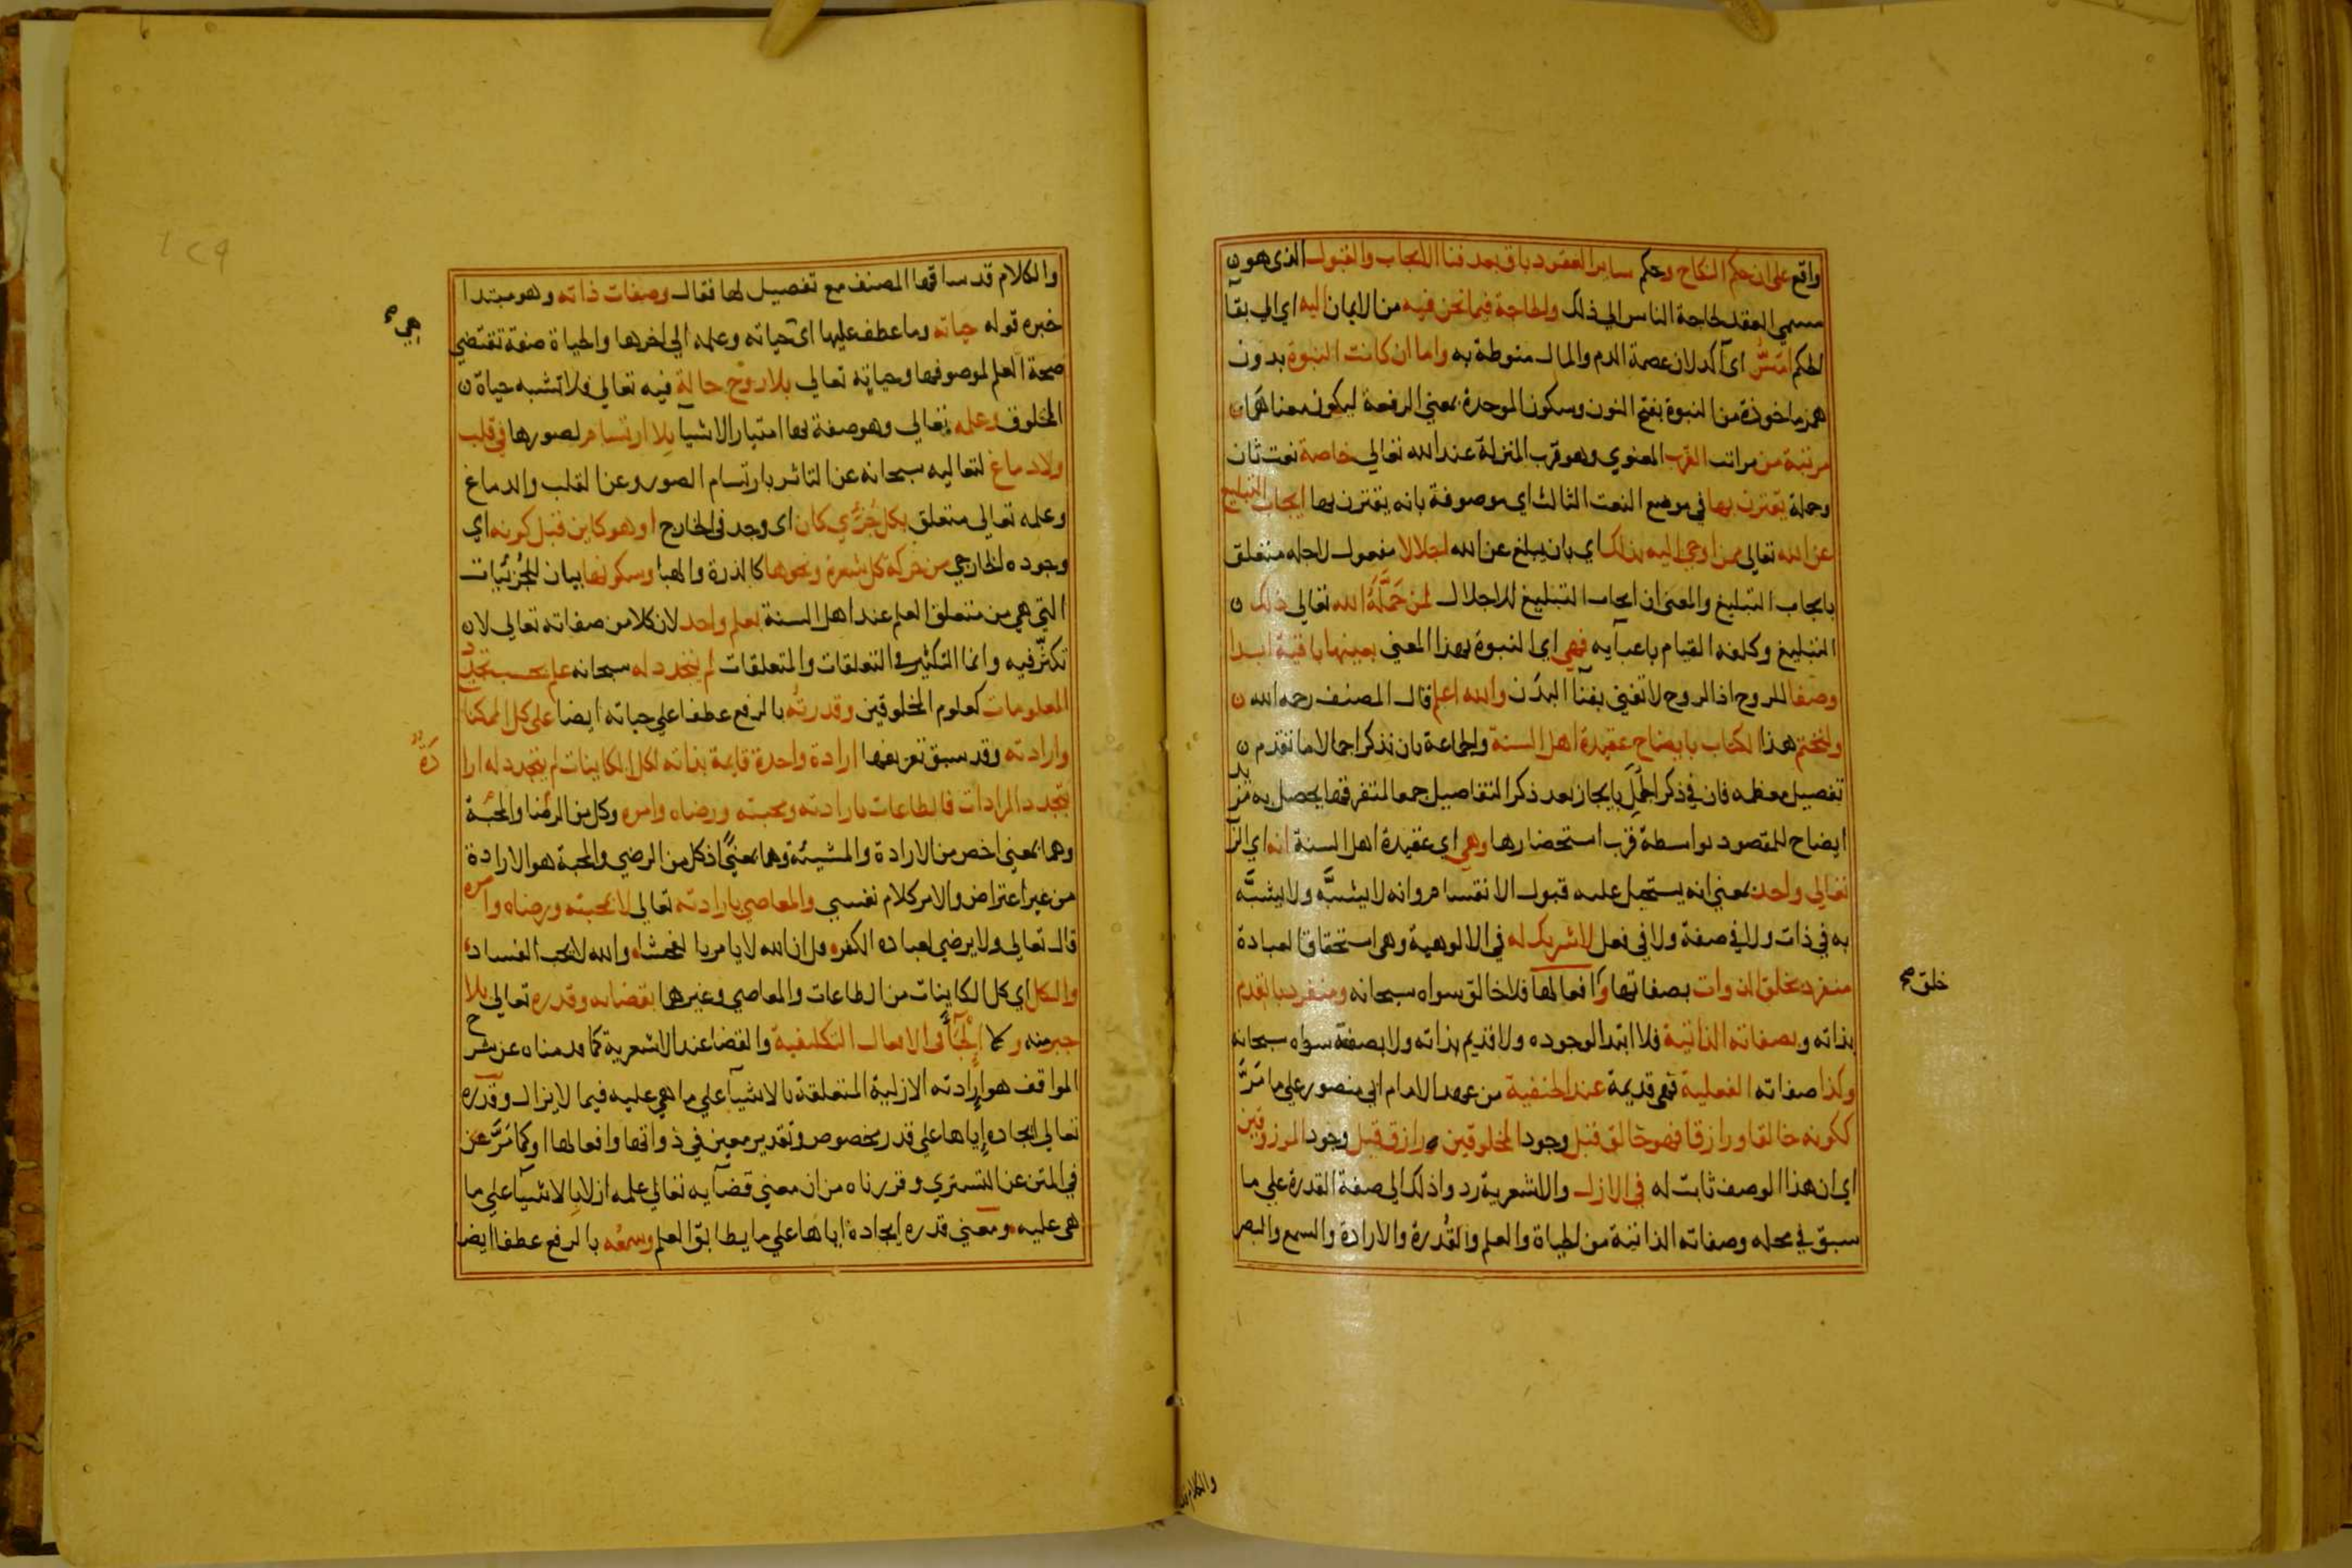 واقع على ان حكم النكاح وحكم سائر العقود باق بعد فنا الايجاب والقبول الذي هو
مسمى العقد لحاجة الناس الى ذلك والحاجة فيما نحن فيه من الايمان اليه اي الى بقآ
الحكم امسُّ اى آكد لان عصمة الدم والمال منوطة به واما ان كانت النبوة بدون
همز ماخوذة من النبوة بفتح النون وسكون الموحدة بمعني الرفعة ليكون معناها
مرتبة من مراتب القرب المعنوي وهو قرب المنزلة عند الله تعالي خاصة نعت ثان
وجملة يقترن بها في موضع النعت الثالث اي موصوفة بانه يقترن بها ايجاب التبليغ
عن الله تعالى بمن اوحي اليه بذلك اي بان يبلغ عن الله اجلالا مفعول لاجله متعلق
بايجاب التبليغ والمعنى ان ايجاب التبليغ للاجلال لمن حَمَّلَهُ الله تعالي ذلك
التبليغ وكلفه القيام باعبآيه فهي اي النبوة بهذا المعني بعينها باقية ابدا
وصفا للروح اذ الروح لا تفني بفنآ البدن والله اعلم قال المصنف رحمه الله
ولنختم هذا الكتاب بايضاح عقيدة اهل السنة والجماعة بان نذكر اجمالا ما تقدم
تفصيل معظمه فان في ذكر المجمل بايجاز بعد ذكر التفاصيل جمعا لمتفرقها يحصل به مزيد
ايضاح للمقصود بواسطة قرب استحضارها وهي اي عقيدة اهل السنة انه اي الله
تعالى واحد بمعني انه يستحيل عليه قبول الانقسام وانه لا يشبَّه ولا يشبَّه
به في ذات ولا في صفة ولا في فعل لا شريك له في الالوهية وهي استحقاق العبادة
منفرد بخلق الذوات بصفاتها وافعالها فلا خالق سواه سبحانه ومنفرد بالقدم
خلق صح
بذاته وبصفاته الذاتية فلا ابتدا لوجوده ولا قديم بذاته ولا بصفة سواه سبحانه
وكذا صفاته الفعلية فهي قديمة عند الحنفية من عهد الامام ابي منصور علي ما مَرَّ
ككونه خالقا ورازقا فهو خالق قبل وجود المخلوقين ورازق قبل وجود المرزوقين
اي ان هذا الوصف ثابت له في الازل والاشعرية ردوا ذلك الى صفة القدرة علي ما
سبق في محله وصفاته الذاتية من الحياة والعلم والقُدرة والارادة والسمع والبصر
والكلام قد
والكلام قد ساقها المصنف مع تفصيل لها فقال وصفات ذاته وهو مبتدا
خبره قوله حياته وما عطف عليها اى حياته وعلمه الي اخرها والحياة صفة تقتضي
صحة العلم لموصوفها وحياته تعالى بلا روح حالة فيه تعالي فلا تشبه حياة
المخلوق وعلمه تعالي وهو صفة بها امتياز الاشيآ بلا ارتسام لصورها في قلب
ولا دماغ لتعاليه سبحانه عن التاثر بارتسام الصور وعن القلب والدماغ
وعلمه تعالي متعلق بكل جُزئي كان اى وجد فى الخارج او هو كاين قبل كونه اي
وجوده الخارجي من حركة كل شعرة ونحوها كالذرة والهبا وسكونها بيان للجُزئيات
التي هي من متعلق العلم عند اهل السنة بعلم واحد لان كلا من صفاته تعالى لا
تكثّر فيه وانما التكثير في التعلقات والمتعلقات لم يتجدد له سبحانه علم بحسب تجدّد
المعلومات كعلوم المخلوقين وقدرته بالرفع عطفا علي حياته ايضا على كل الممكنات
وارادته وقد سبق تعريفها ارادة واحدة قايمة بذاته لكل الكاينات لم يتجدد له ارا
دَةٌ
بتجدد المرادات فالطاعات بارادته ومحبته ورضاه وامره وكل من الرضا والمحبة
وهما بمعني اخص من الارادة والمشيئة وهما بمعنًي اذ كل من الرضي والمحبة هو الارادة
من غير اعتراض والامر كلام نفسي والمعاصي بارادته تعالي لا بمحبته ورضاه وامره
قال تعالى ولا يرضي لعباده الكفر قل ان الله لا يامر بالفحشاء والله لا يحب الفساد
والكل اي كل الكاينات من الطاعات والمعاصي وغيرها بقضائه وقدره تعالى بلا
جبر منه ولا اِلْجَآء في الافعال التكليفية والقضا عند الاشعرية كما قدمناه عن شرح
المواقف هو اِرادته الازلية المتعلقة بالاشيآ علي ما هي عليه فيما لا يزال وقدره
تعالي ايجاده اِياها علي قدر مخصوص وتقدير معين في ذواتها وافعالها او كما مَرَّ عن
في المتن عن التستري وقررناه من ان معني قضآيه تعالي علمه ازلا بالاشيآ علي ما
هي عليه ومعني قدره ايجاده اياها علي ما يطابق العلم وسمعُه بالرفع عطفا ايضا